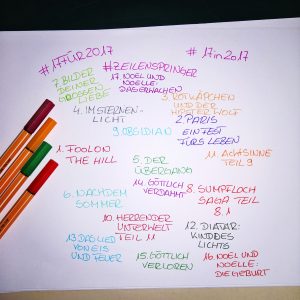 #17FÜR2017
#17in2017
#ZEILENSPRINGER
7. BILDER
DEINER
GROSSEN
LIEBE
17. NOEL UND
NOELLE:
DAS ERWACHEN
3. ROTKÄPPCHEN
UND DER
HIPSTER WOLF
4. IM STERNEN-
LICHT
2. PARIS
EIN FEST
FÜRS LEBEN
9. OBSIDIAN
1. FOOL ON
THE HILL
5. DER
ÜBERGANG
11. ACHTSINNE
TEIL 9
14. GÖTTLICH
VERDAMMT
6. NACH DEM
SOMMER
8. SUMPFLOCH
SAGA TEIL
8.1
10. HERR DER
UNTERWELT
TEIL 11
12. DIATAR:
KIND DES
LICHTS
13. DAS LIED
VON EIS
UND FEUER
15. GÖTTLICH
VERLOREN
16. NOEL UND
NOELLE:
DIE GEBURT